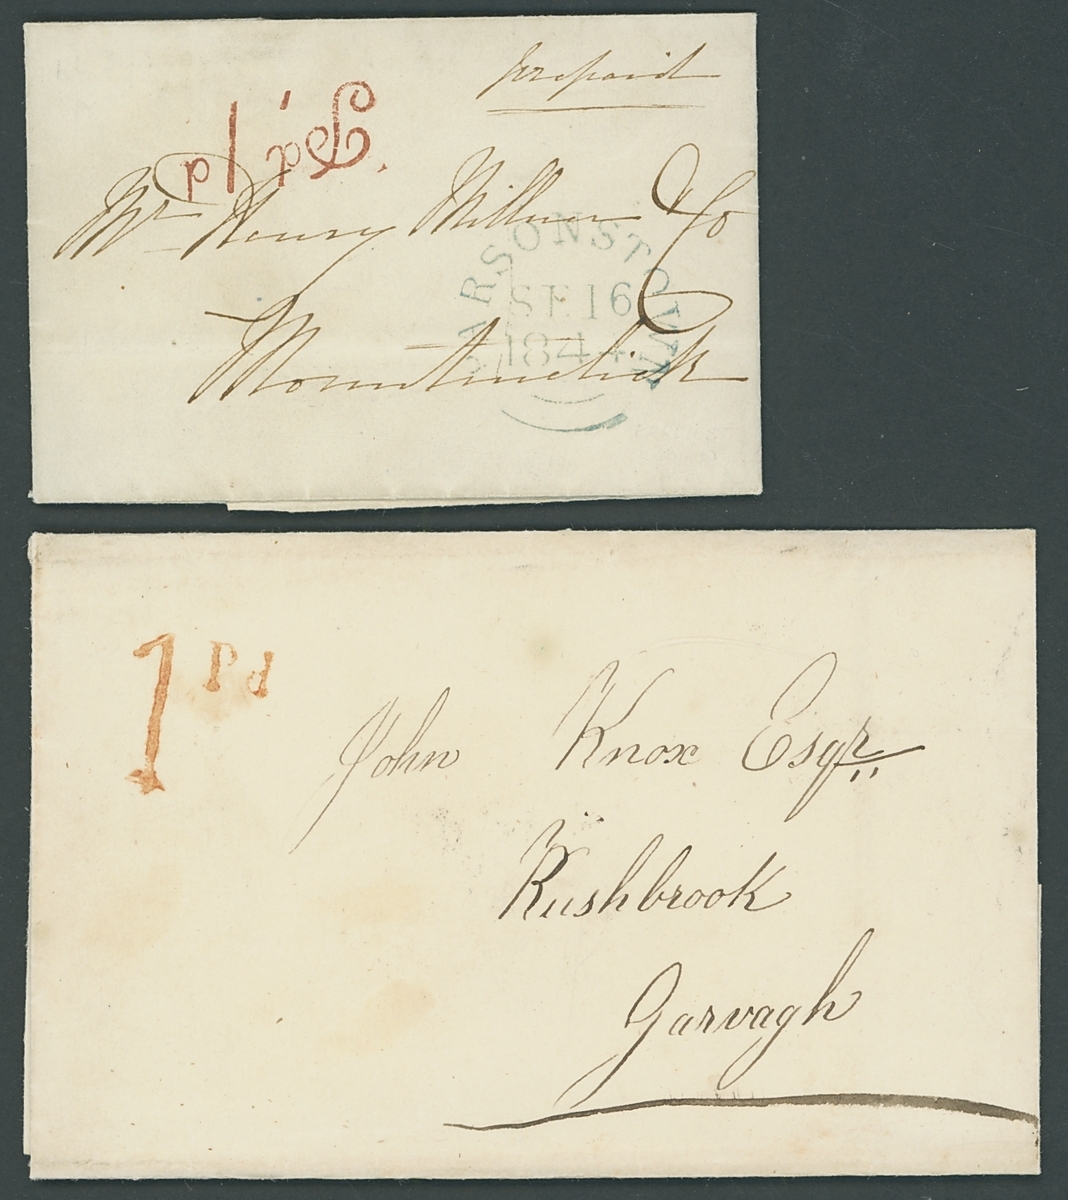 prepaid
Pd 1d
Mr Henry Millner & Co
PARSONSTOWN
SE 16
1844
Mountmelick
1 Pd
John Knox Esqr
Rushbrook
Garvagh